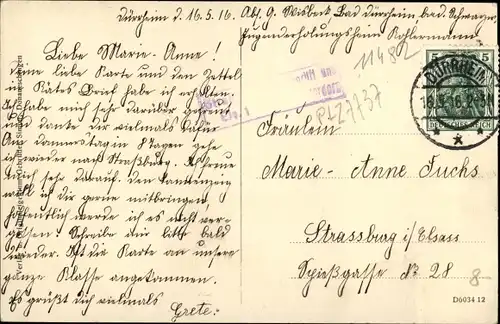 Dürrheim d. 16.5.16. Abs. G. Wisbeck, Bad Dürrheim, bad. Schwarzw.
Jugenderholungsheim
Liebe Marie-Anne!
Deine liebe Karte und den Zettel
in Kätes Brief habe ich erhalten.
Ich habe mich sehr darüber gefreut
und danke dir vielmals dafür.
Am Donnerstag 8 Tagen gehe
ich wieder nach Strassburg. Ich freue
mich sehr darauf. Den
will ich dir gerne mitbringen,
hoffentlich werde ich es nicht ver-
gessen. Schreibe mir bitte bald
wieder. Ist die Karte an unsere
ganze Klasse angekommen.
Es grüßt dich vielmals
Grete.
11482
PLZ7737
5 5
DÜRRHEIM
16.5.16.
DEUTSCHES REICH
Fräulein
Marie-Anne Fuchs
Strassburg i/Elsass
Spießgasse № 28
8
D6034 12